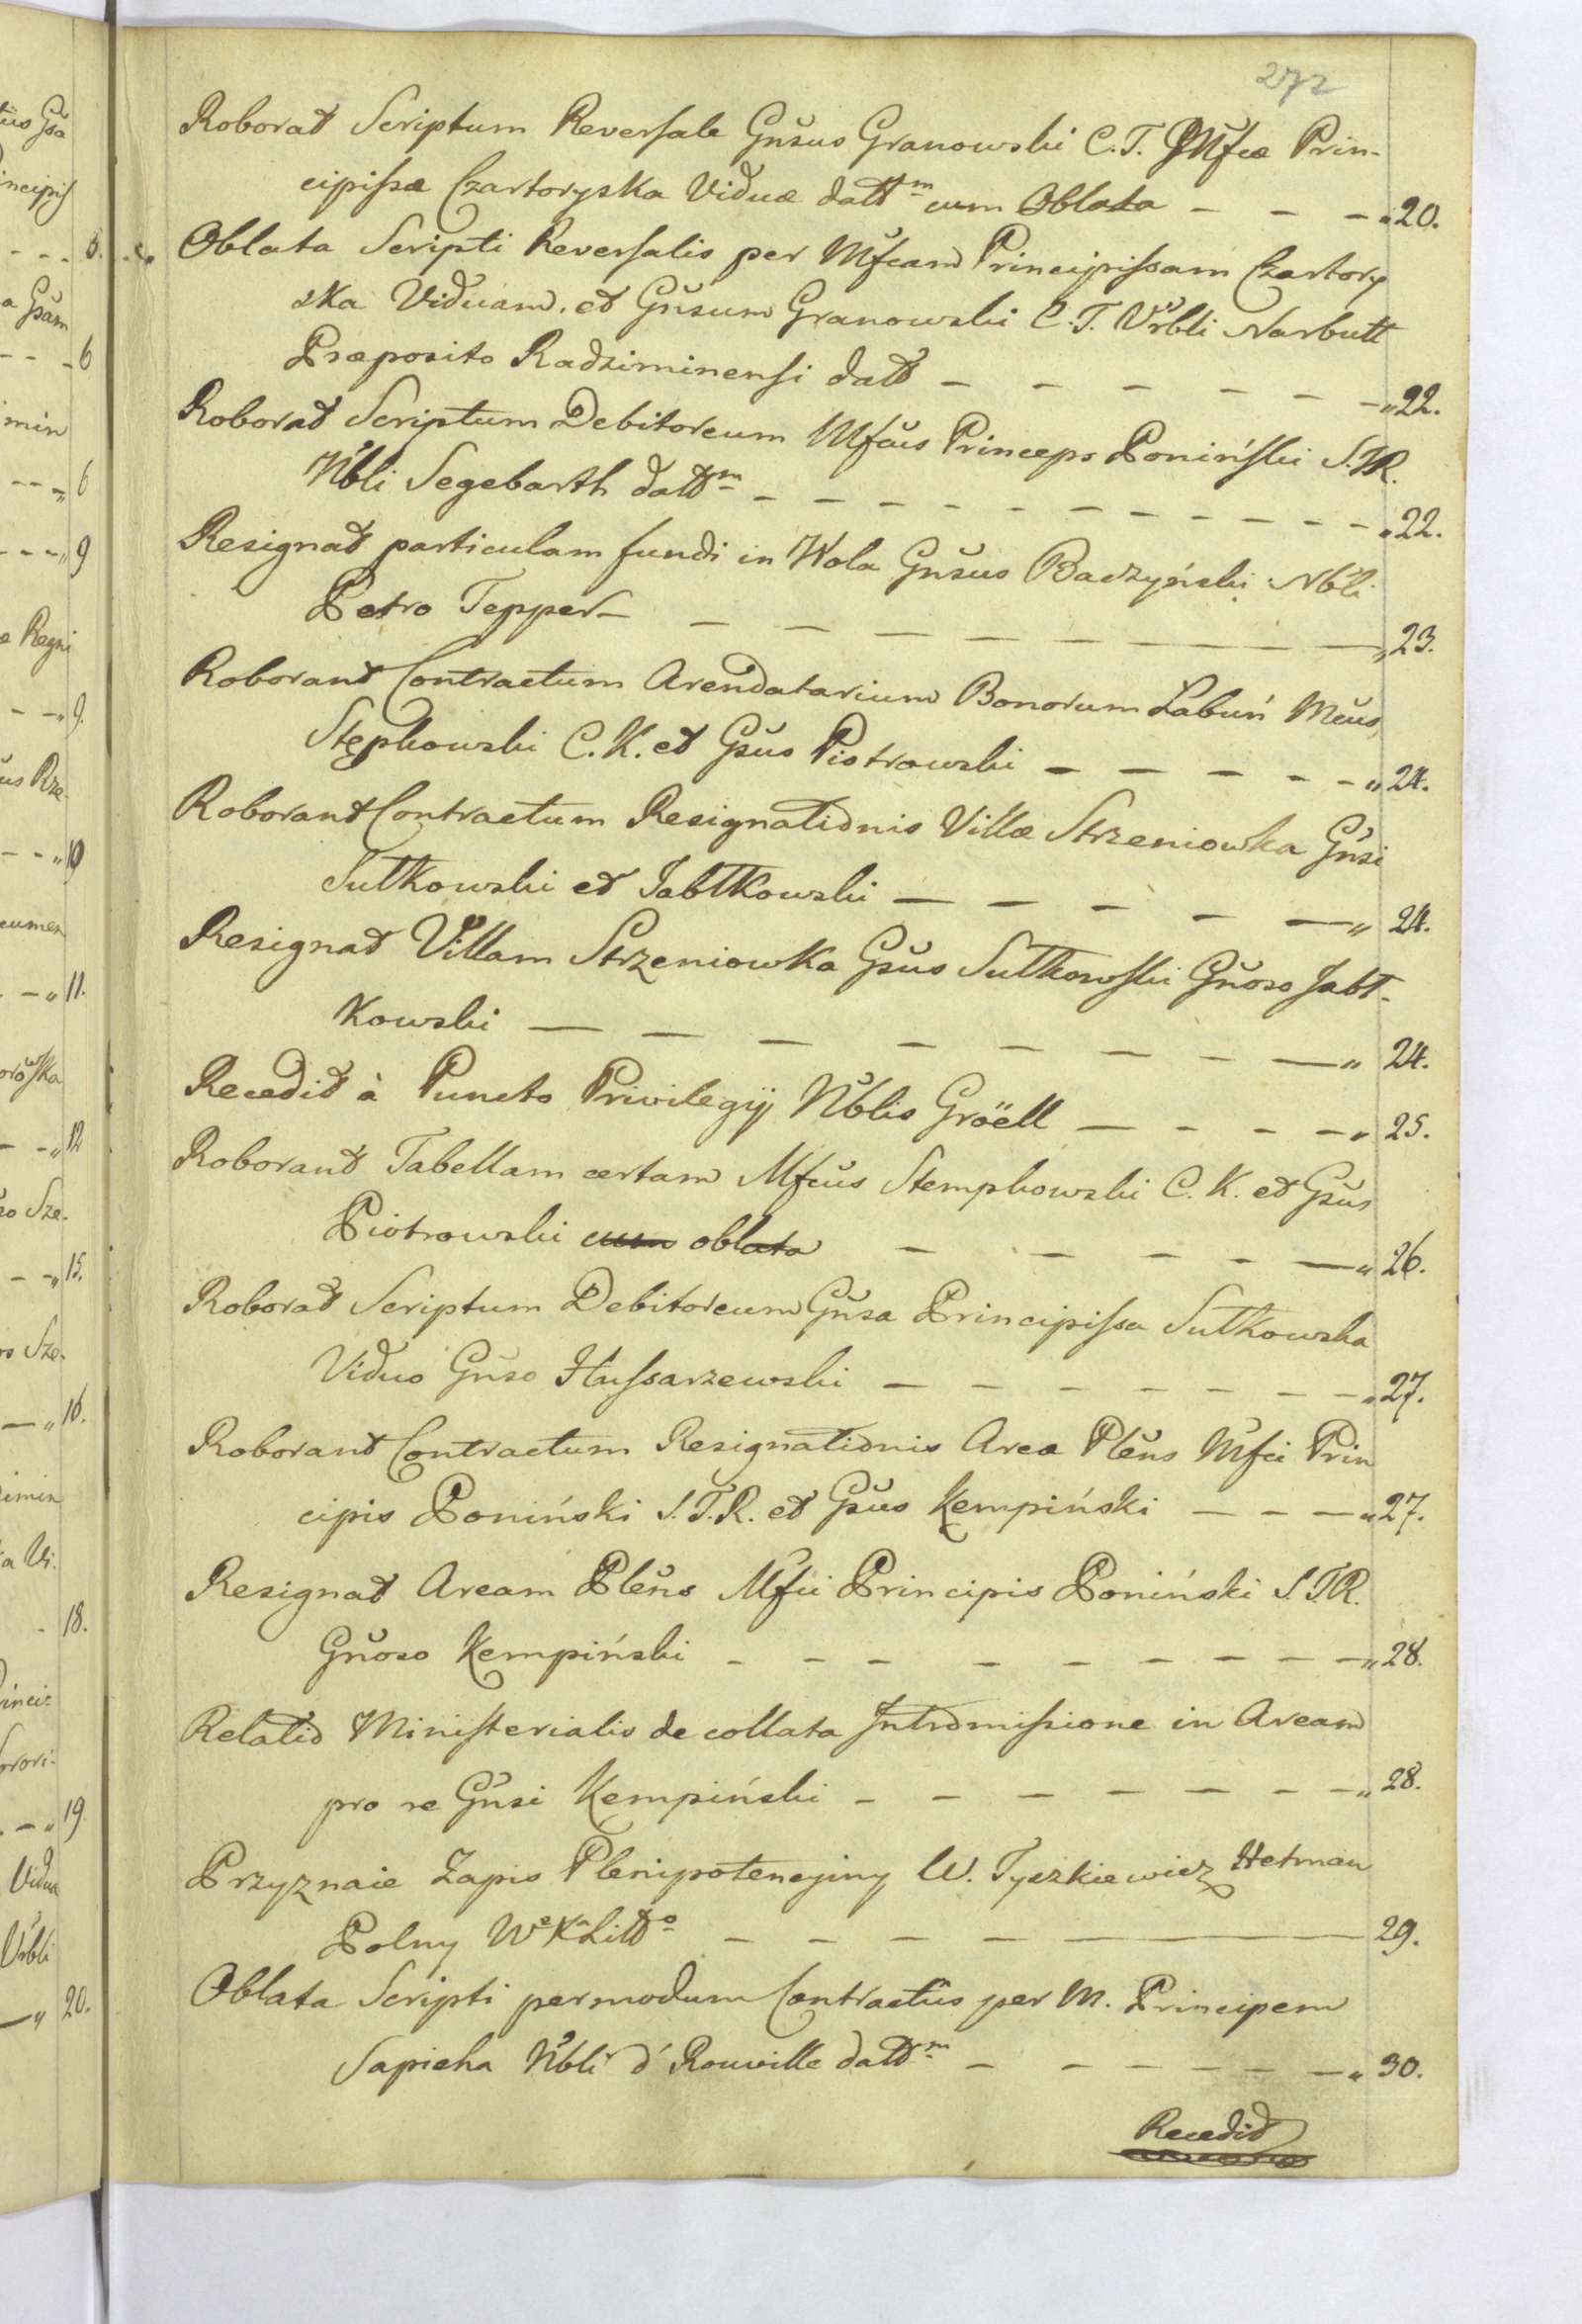 272
Roborat Scriptum Reversale Gnsus Granowski C.T. Mfcæ Prin-
cipissæ Czartoryska Viduæ datt m cum Oblata — — — „ 20.
Oblata Scripti Reversalis per Mfcam Principissam Czartory
ska Viduam, et Gnsum Granowski C.T. Vrbli Narbutt
Præposito Radziminensi datt — — — — — — „ 22.
Roborat Scriptum Debitoreum Mfcus Princeps Poniński S.T.R.
Nbli Segebarth datt m — — — — — — — — „ 22.
Resignat particulam fundi in Wola Gnsus Baczyński Nbli
Petro Tepper — — — — — — — „ 23.
Roborant Contractum Arendatarium Bonorum Łabuń Mcus
Stępkowski C.K. et Gsus Piotrowski — — — — — „ 24.
Roborant Contractum Resignationis Villæ Strzeniowka Gnsi
Sułkowski et Jabłkowski — — — — — „ 24.
Resignat Villam Strzeniowka Gsus Sułkowski Gnoso Jabł-
kowski — — — — — — — — „ 24.
Recedit à Puncto Privilegij Nblis Gröell — — — — „ 25.
Roborant Tabellam certam Mfcus Stempkowski C.K. et Gsus
Piotrowski cum oblata — — — — — „ 26.
Roborat Scriptum Debitoreum Gnsa Principissa Sułkowska
Vidua Gnso Hussarzewski — — — — — — — „ 27.
Roborant Contractum Resignationis Areæ Plens Mfci Prin
cipis Poniński S.T.R. et Gsus Kempiński — — — „ 27.
Resignat Aream Plens Mfci Principis Poniński S.T.R.
Gnoso Kempiński — — — — — — — — — „ 28.
Relatio Ministerialis de collata Intromissione in Aream
pro re Gnsi Kempiński — — — — — — — „ 28.
Przyznaie Zapis Plenipotencyiny W. Tyszkiewicz Hetman
Polny We Xa Litto — — — — — 29.
Oblata Scripti per modum Contractus per M. Principem
Sapieha Nbli d'Rouville datt m — — — — — — „ 30.
Recedit